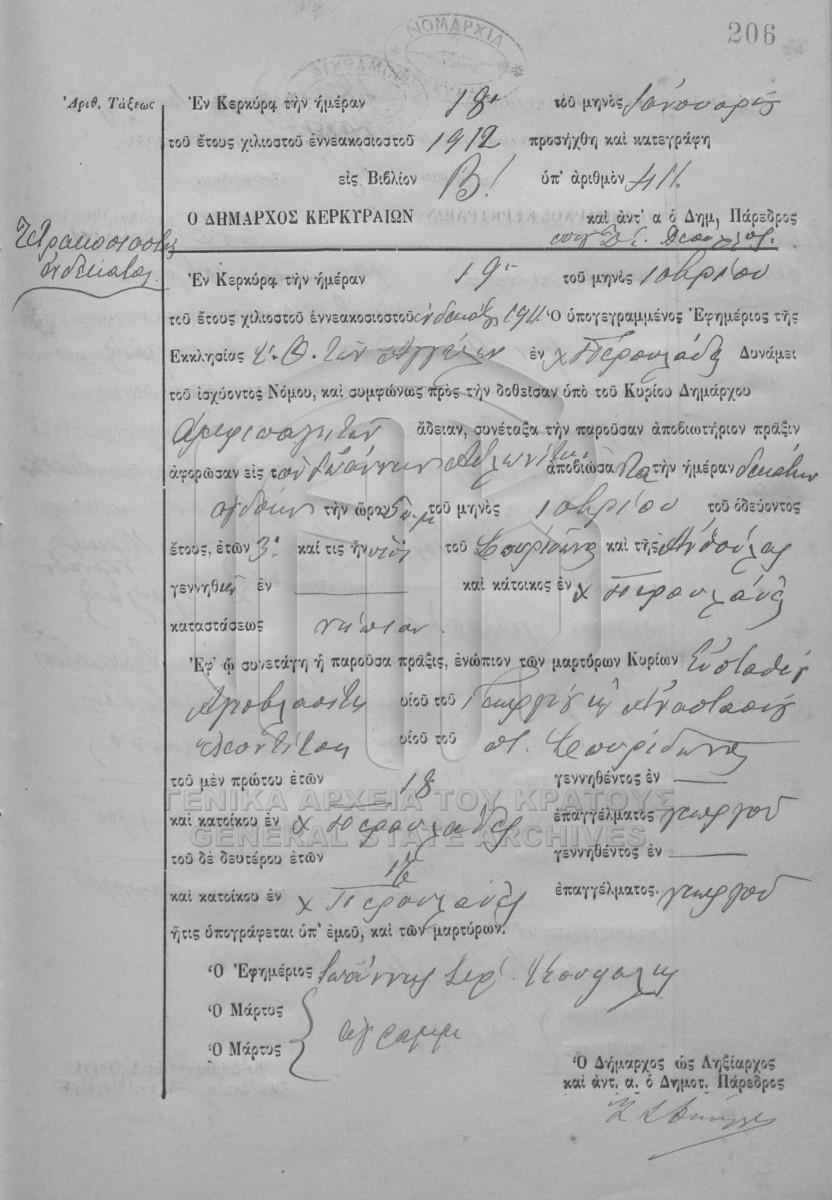 206
ΝΟΜΑΡΧΙΑ
Ἀριθ. Τάξεως
Ἐν Κερκύρᾳ τὴν ἡμέραν 18 τοῦ μηνὸς Ἰανουαρίου
τοῦ ἔτους χιλιοστοῦ ἐννεακοσιοστοῦ 1912 προσήχθη καὶ κατεγράφη
εἰς Βιβλίον Β! ὑπ' ἀριθμὸν 411.
Ο ΔΗΜΑΡΧΟΣ ΚΕΡΚΥΡΑΙΩΝ καὶ ἀντ' α ὁ Δημ, Πάρεδρος
Τετρακοσιοστὸς
ἑνδέκατος
Ἐν Κερκύρᾳ τὴν ἡμέραν 19 τοῦ μηνὸς
τοῦ ἔτους χιλιοστοῦ ἐννεακοσιοστοῦ ἑνδεκάτου 1911 Ὁ ὑπογεγραμμένος Ἐφημέριος τῆς
Ἐκκλησίας τῶν Ἀγγέλων ἐν χ Περουλάδες Δυνάμει
τοῦ ἰσχύοντος Νόμου, καὶ συμφώνως πρὸς τὴν δοθεῖσαν ὑπὸ τοῦ Κυρίου Δημάρχου
ἄδειαν, συνέταξα τὴν παροῦσαν ἀποβιωτήριον πρᾶξιν
ἀφορῶσαν εἰς τὸν Ἰωάννην ἀποβιώσαντα τὴν ἡμέραν δεκάτην
ὀγδόην τὴν ὥραν τοῦ μηνὸς τοῦ ὁδεύοντος
ἔτους, ἐτῶν 3 καί τις ἦν υἱὸς τοῦ Σπυρίδωνος καὶ τῆς
γεννηθεὶς ἐν —— καὶ κάτοικος ἐν χ Περουλάδες
καταστάσεως νήπιον.
Ἐφ' ᾧ συνετάγη ἡ παροῦσα πρᾶξις, ἐνώπιον τῶν μαρτύρων Κυρίων Εὐσταθίου
υἱοῦ τοῦ Γεωργίου κ Ἀναστασίου
υἱοῦ τοῦ π. Σπυρίδωνος
τοῦ μὲν πρώτου ἐτῶν 18 γεννηθέντος ἐν ——
καὶ κατοίκου ἐν χ Περουλάδες ἐπαγγέλματος γεωργοῦ
τοῦ δὲ δευτέρου ἐτῶν γεννηθέντος ἐν ——
καὶ κατοίκου ἐν χ Περουλάδες ἐπαγγέλματος. γεωργοῦ
ἥτις ὑπογράφεται ὑπ' ἐμοῦ, καὶ τῶν μαρτύρων.
Ὁ Ἐφημέριος Ἰωάννης Ἱερ.
Ὁ Μάρτυς
Ὁ Μάρτυς
ἀγραμμ
Ὁ Δήμαρχος ὡς Ληξίαρχος
καὶ ἀντ. α. ὁ Δημοτ. Πάρεδρος
ΓΕΝΙΚΑ ΑΡΧΕΙΑ ΤΟΥ ΚΡΑΤΟΥΣ
GENERAL STATE ARCHIVES